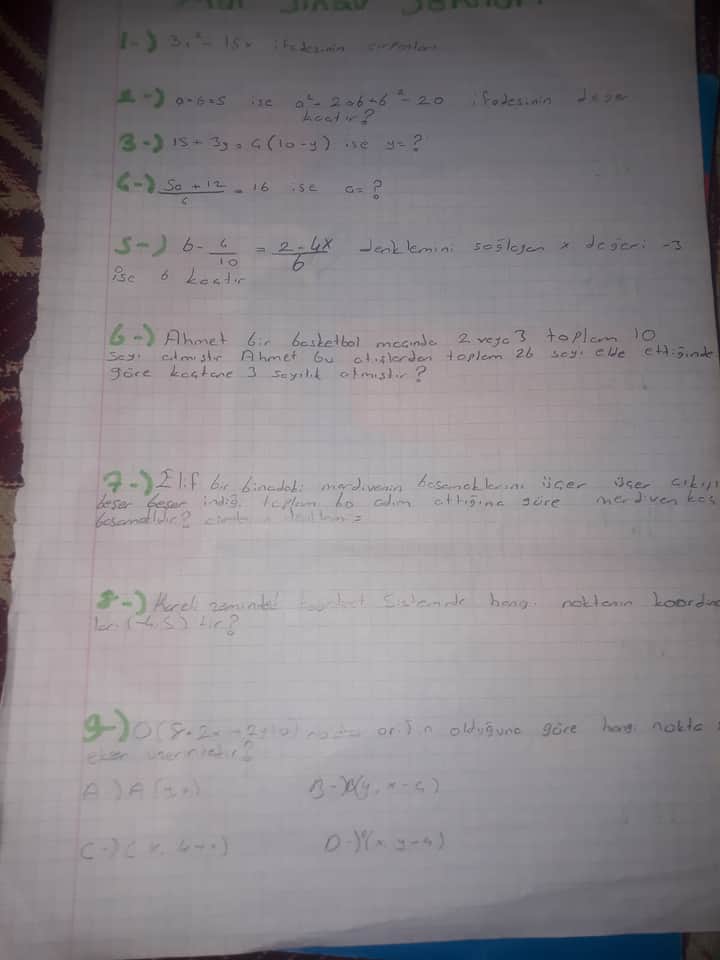 SINAV
1-) 3x² - 15x ifadesinin çarpanları
2-) a-b=5 ise a²-2ab+b²-20 ifadesinin değer
kaçtır?
3-) 15+3y=4(10-y) ise y=?
4-) 5a+12/4 = 16 ise a=?
5-) b- 4/10 = 2-4x/6 denklemini sağlayan x değeri -3
ise b kaçtır
6-) Ahmet bir basketbol maçında 2 veya 3 toplam 10
sayı atmıştır Ahmet bu atışlardan toplam 26 sayı elde ettiğinde
göre kaçtane 3 sayılık atmıştır?
7-) Elif bir binadaki merdivenin basamaklarını üçer üçer çıkıp
beşer beşer indiğ. toplam adım attığına göre merdiven kaç
basamaklıdır?
8-) Kareli zemindeki koordinat sisteminde hangi noktanın koordina
ları (-4,5) tir?
9-) orjin olduğuna göre hangi nokta
A-) A(y,x) B-) (y, x-4)
C-) D-) (x, y-4)